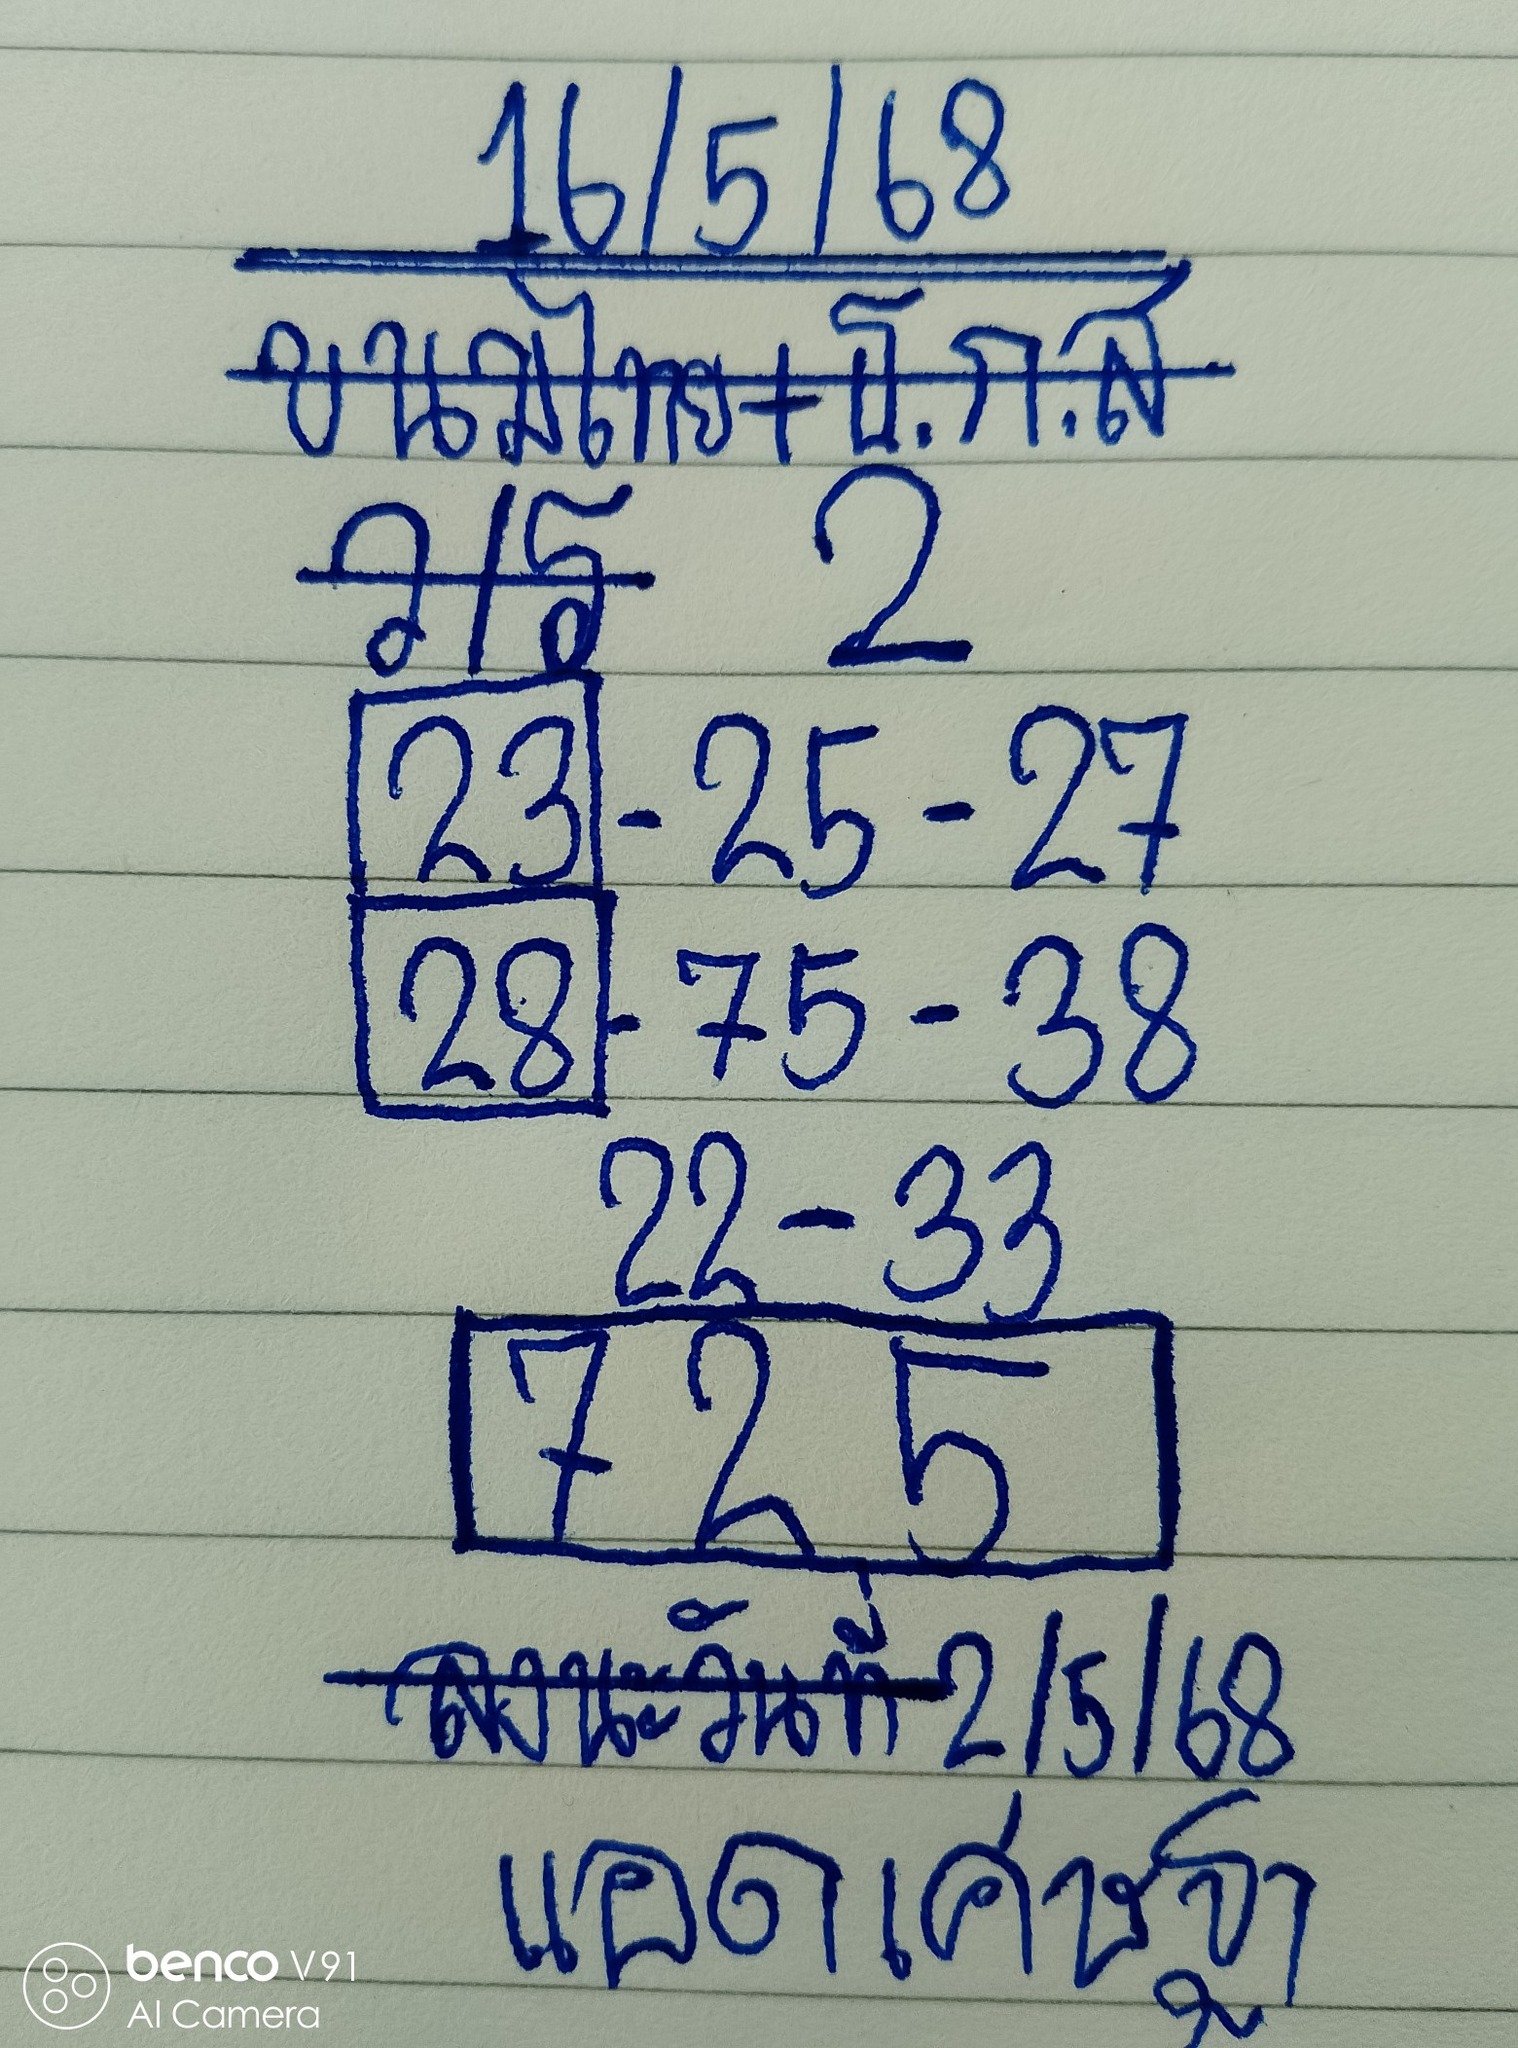 16/5/68
ขนมไทย+ธ.ก.ส
ว/ธ 2
23-25-27
28-75-38
22-33
725
ลงนะวันที่ 2/5/68
แอดเศษฐา
benco V91
AI Camera